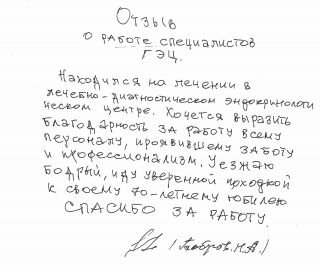 Отзыв
о работе специалистов
ГЭЦ.
Находился на лечении в
лечебно-диагностическом эндокринологи
ческом центре. Хочется выразить
благодарность за работу всему
персоналу, проявившему заботу
и профессионализм. Уезжаю
бодрый, иду уверенной походкой
к своему 70-летнему юбилею
СПАСИБО ЗА РАБОТУ.
(Бобров.Н.А.)